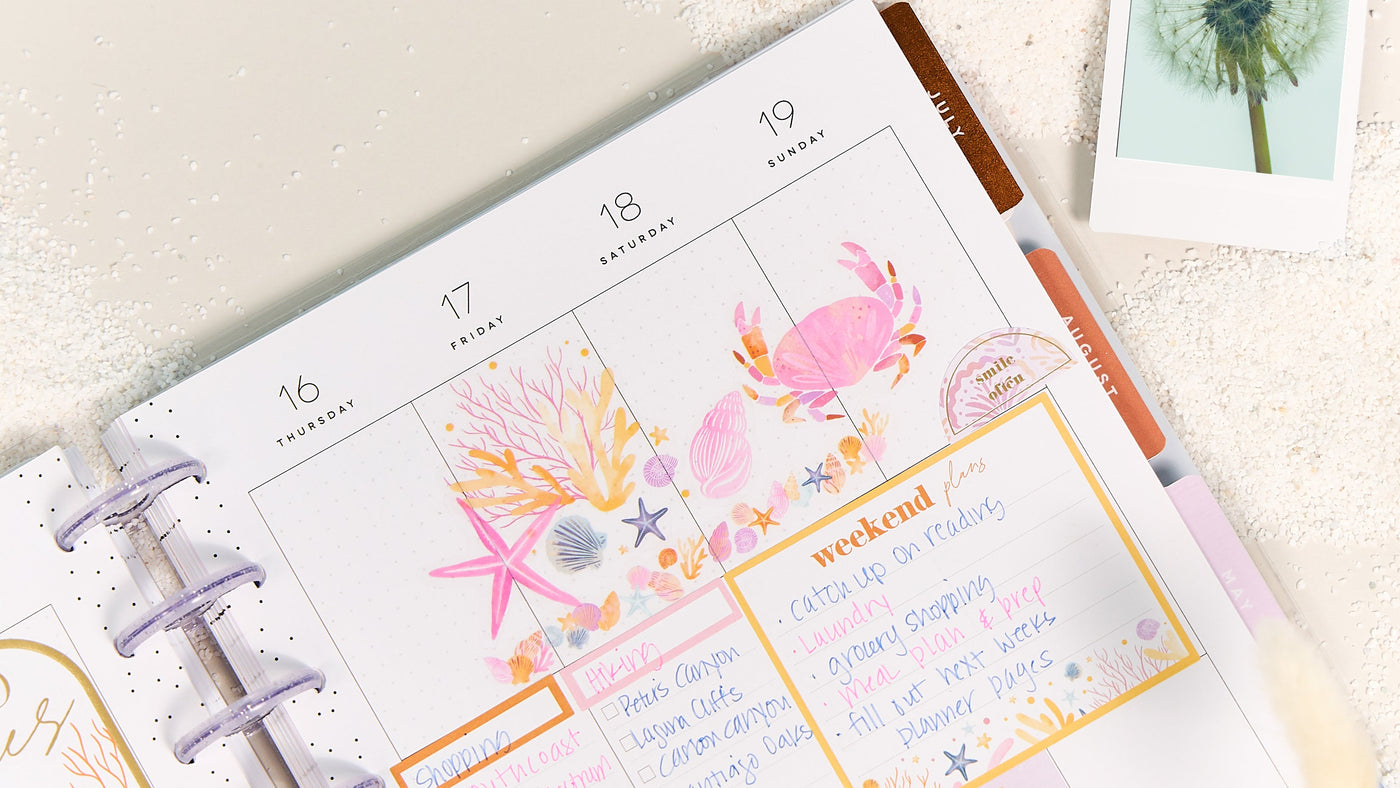 16
THURSDAY
17
FRIDAY
18
SATURDAY
19
SUNDAY
JULY
AUGUST
MAY
smile
often
weekend plans
· catch up on reading
· Laundry
· grocery shopping
· Meal plan & prep
· fill out next weeks
planner pages
Hiking
Peters Canyon
Laguna Cliffs
Carbon Canyon
Oaks
Shopping